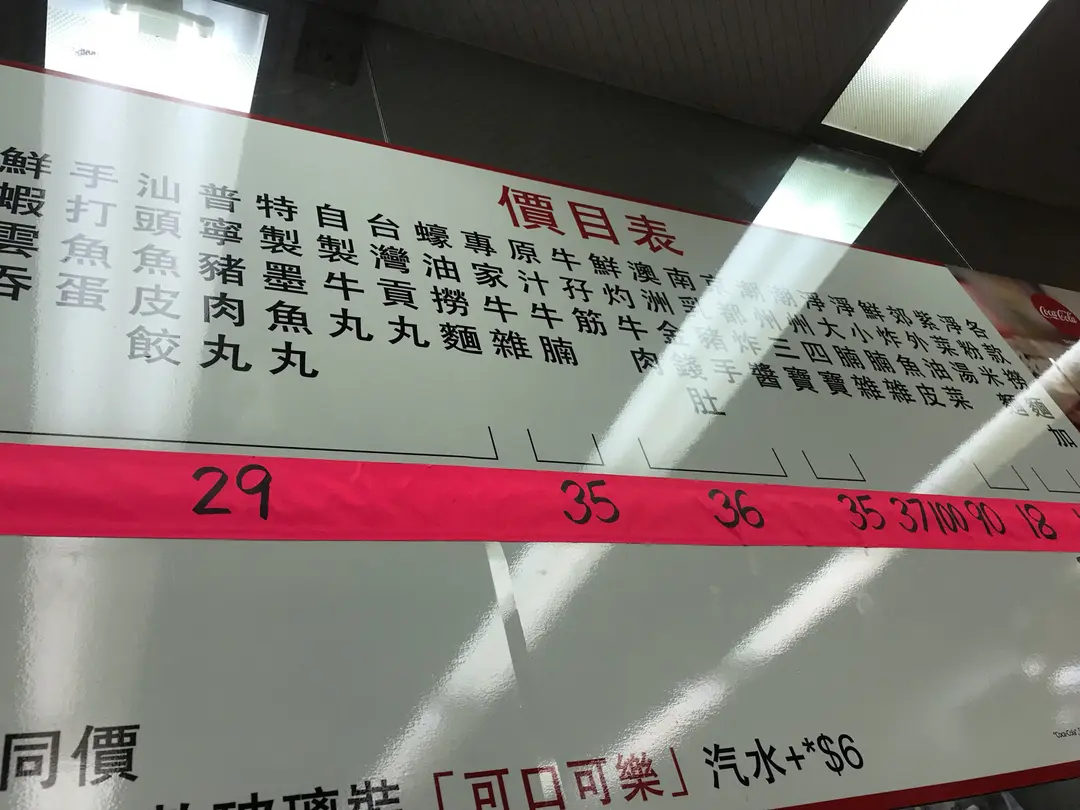 價目表
鮮蝦雲吞
手打魚蛋
汕頭魚皮餃
普寧豬肉丸
特製墨魚丸
自製牛丸
台灣貢丸
蠔油撈麵
專家牛雜
原汁牛腩
牛孖筋
鮮灼牛肉
澳洲金錢肚
南乳豬手
都炸醬
潮州三寶
潮州四寶
淨大腩雜
淨小腩雜
鮮炸魚皮
郊外油菜
紫菜湯
淨粉米麵
各款撈麵加
29 35 36 35 37 100 90 18
同價
玻璃裝「可口可樂」汽水+*$6
Coca-Cola